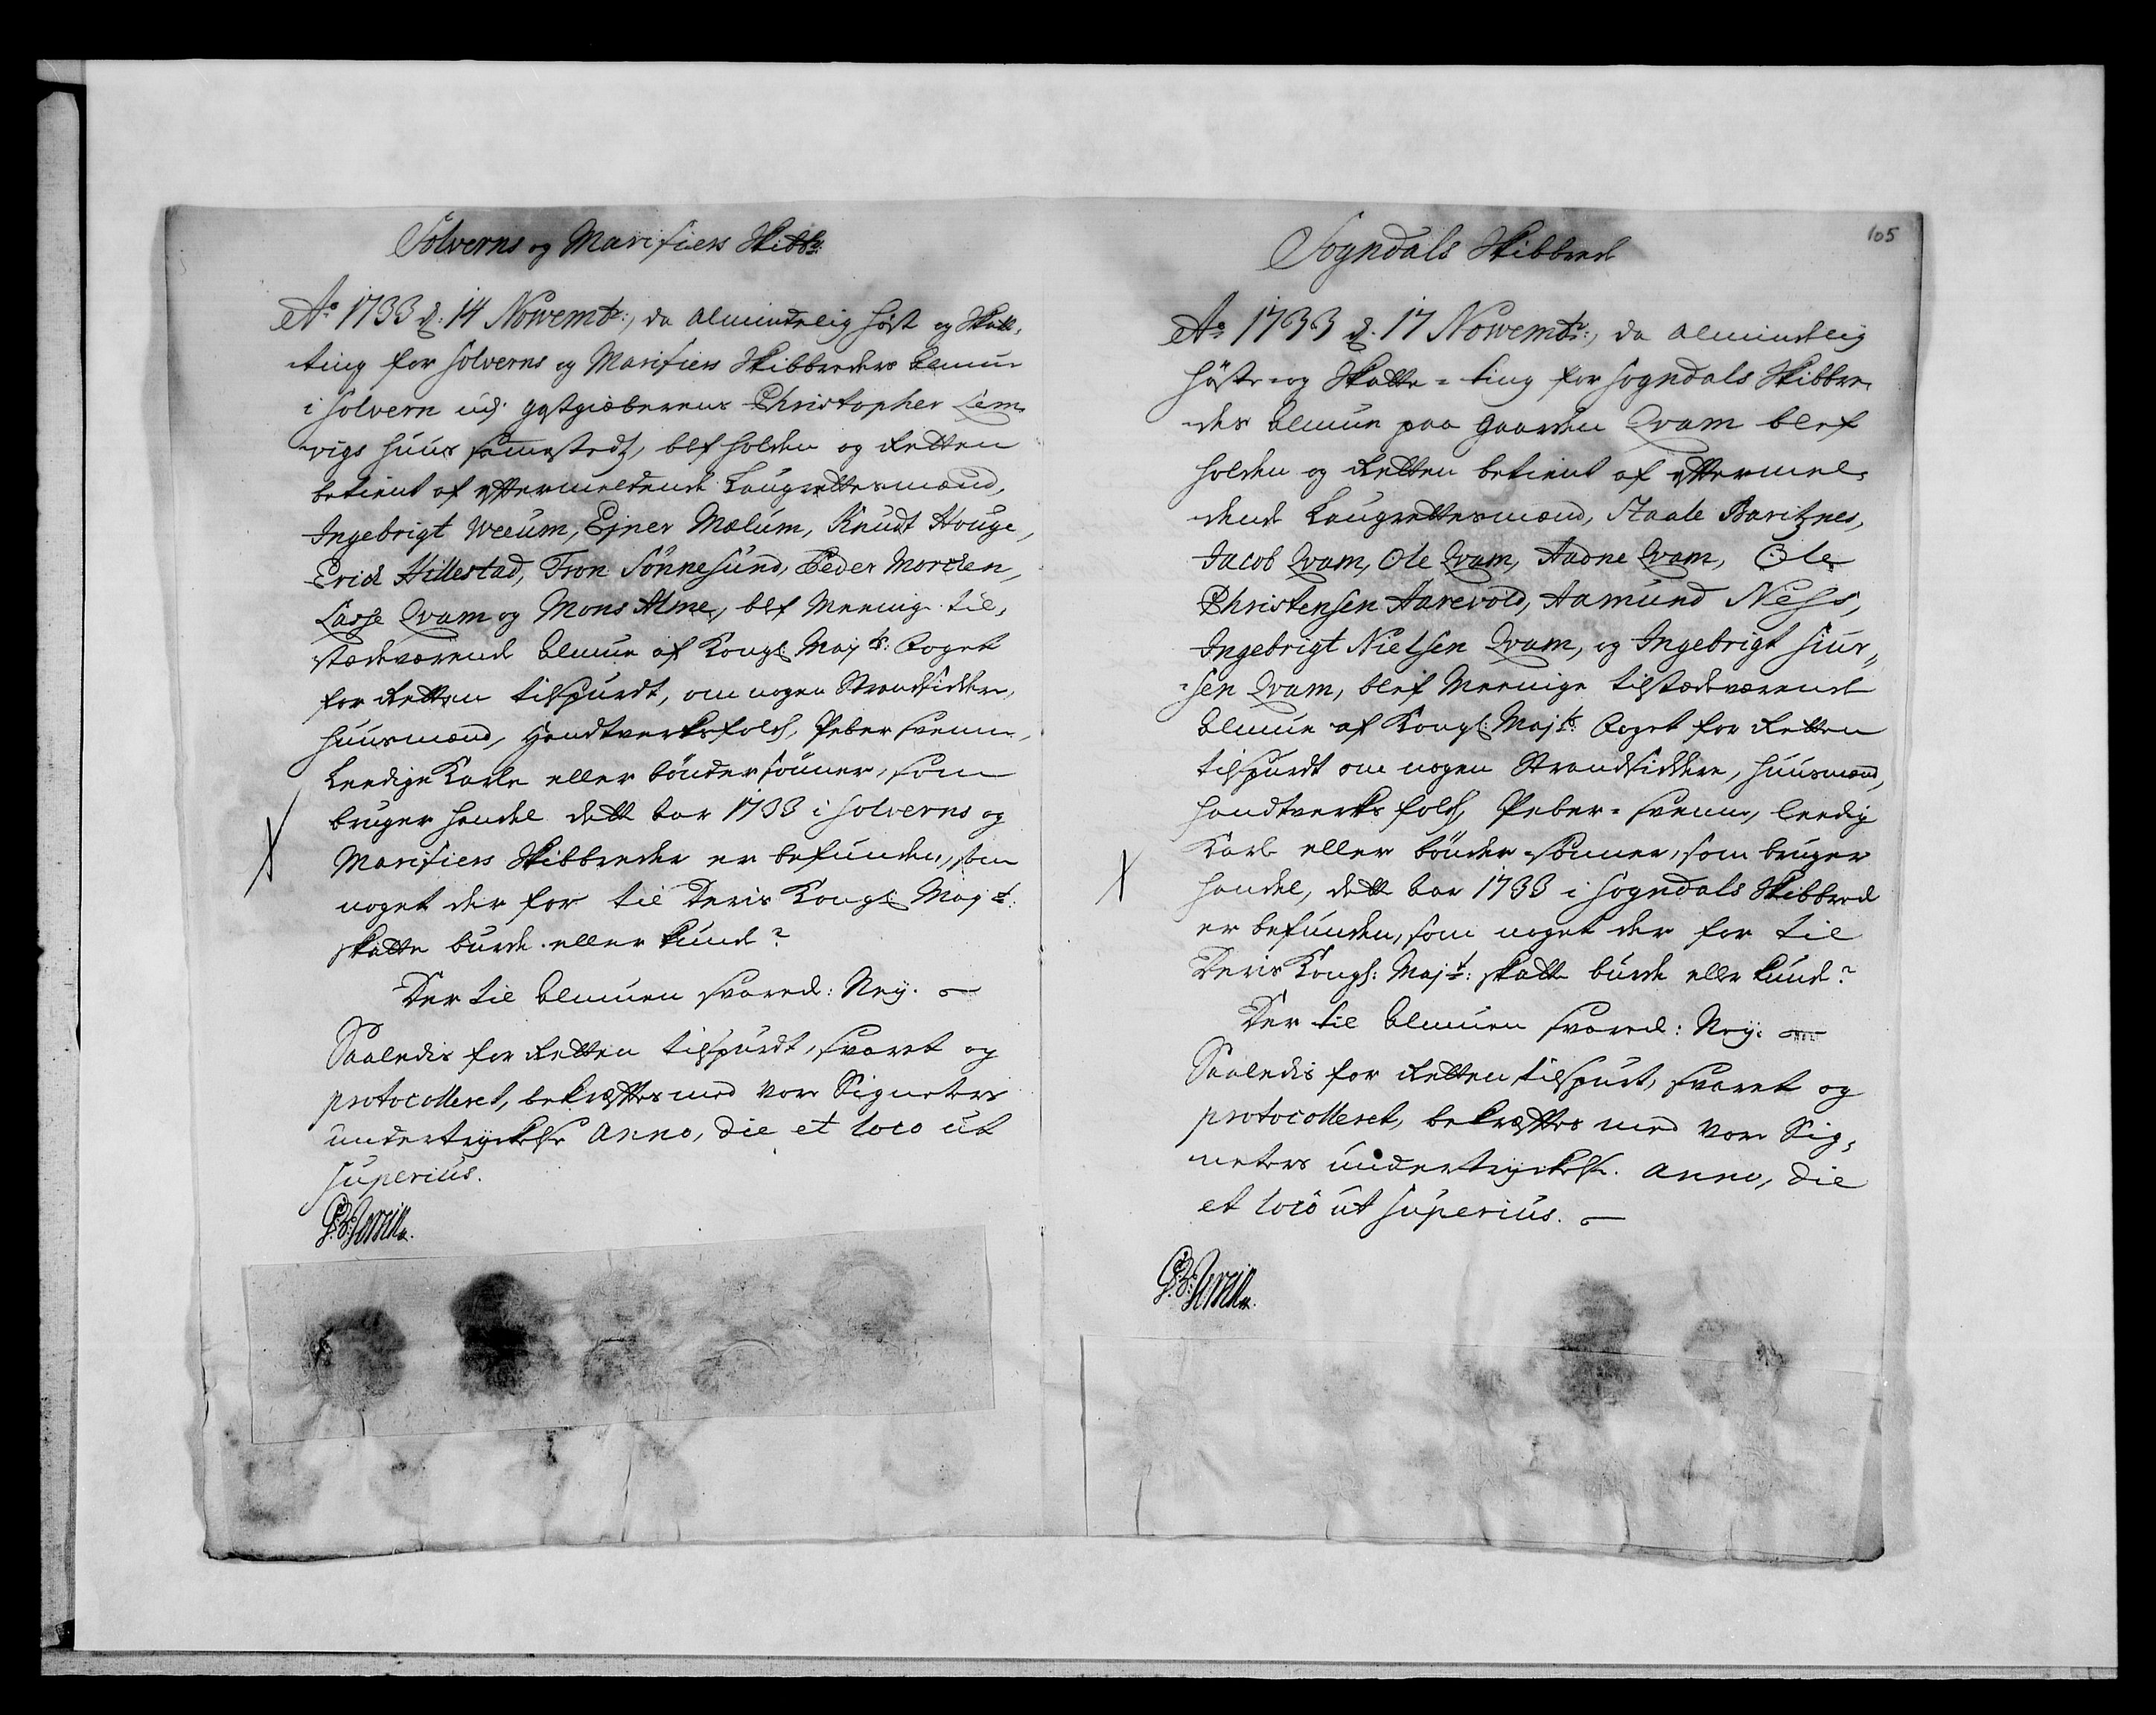 Solverns og Marifiers Skibbr:
Ao 1733 d: 14 Novembr:, da almindelig Høst og Skatte,
ting for Solverns og Marifiers Skibbreders Almue
i Solvern udj gystgiæberens Christopher Lem,
vigs Huus sammestedtz, blef holden og Retten
betient af eftermeldende Laugrettesmænd,
Ingebrigt Weeum, Ejner Mælum, Knudt Houge,
Erich Hillestad, Tron Sønnesund, Peder Morden,
Lasse Qvam og Mons Alme, blef Meenige til,
stædeværende Almue af Kongl: Majts: Foget
for Retten tilspurdt, om nogen Strandsiddere,
Huusmænd, Handtverksfolch, Peber Svenne,
Leedige Karle eller bønder sønner, som
bruger Handel dette Aar 1733 i Solverns og
Marifiers Skibbreder er befunden, som
noget der for til Deris Kongl: Majt:
skatte burde eller kunde?
Der til Almuen svarede: Neij.
Saaledis for Retten tilspurdt, svaret og
protocolleret, bekræftes med vore Signeters
undertryckelse Anno, die et loco ut
superius.
105
Sogndals Skibbrede
Ao 1733 d. 17 Novembr:, da almindelig
Høste- og Skatte-ting for Sogndals Skibbre,
des Almue paa gaarden Qvam blef
holden og Retten betient af eftermel,
dende Laugrettesmænd, Staale Baritznes,
Jacob Qvam, Ole Qvam, Aadne Qvam, Ole
Christensen Aarevold, Aamund Ness,
Ingebrigt Nielsen Qvam, og Ingebrigt Siur,,
sen Qvam, blef Meenige tilstædeværende
Almue af Kongl: Majts: Foget for Retten
tilspurdt om nogen Strandsiddere, Huusmænd,
Handtverks folch, Peber-Svenne, leedig
Karle eller bønder-sønner, som bruger
Handel, dette Aar 1733 i Sogndals Skibbrede
er befunden, som noget der for til
Deris Kongl: Majt: skatte burde eller kunde?
Der til Almuen svarede: Neij.
Saaledis for Retten tilspurt, svaret og
protocolleret, bekræftes med vore Sig,
neters undertryckelse. Anno, die
et loco ut superius.